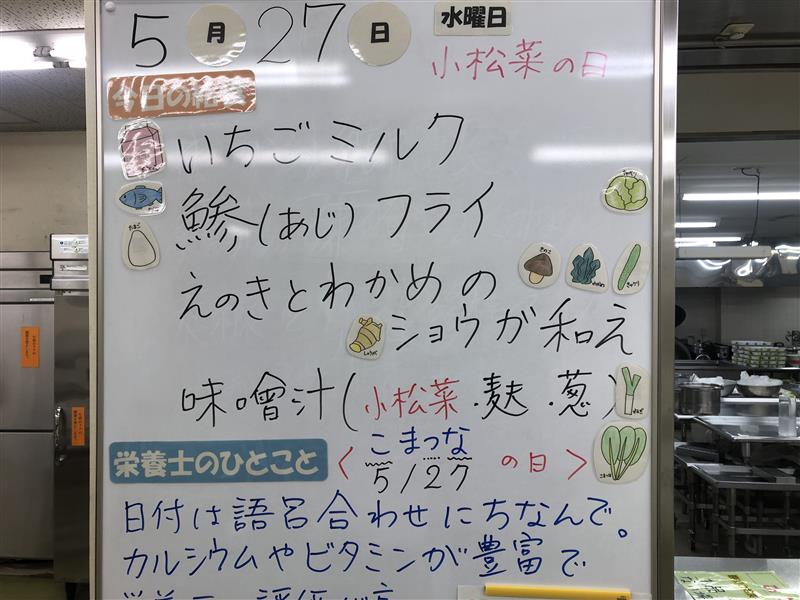 5月27日 水曜日
小松菜の日
今日の給食
いちごミルク
鯵(あじ)フライ
えのきとわかめの
ショウガ和え
味噌汁(小松菜・麩・葱)
栄養士のひとこと
<こまつな
5/27の日>
日付は語呂合わせにちなんで。
カルシウムやビタミンが豊富で